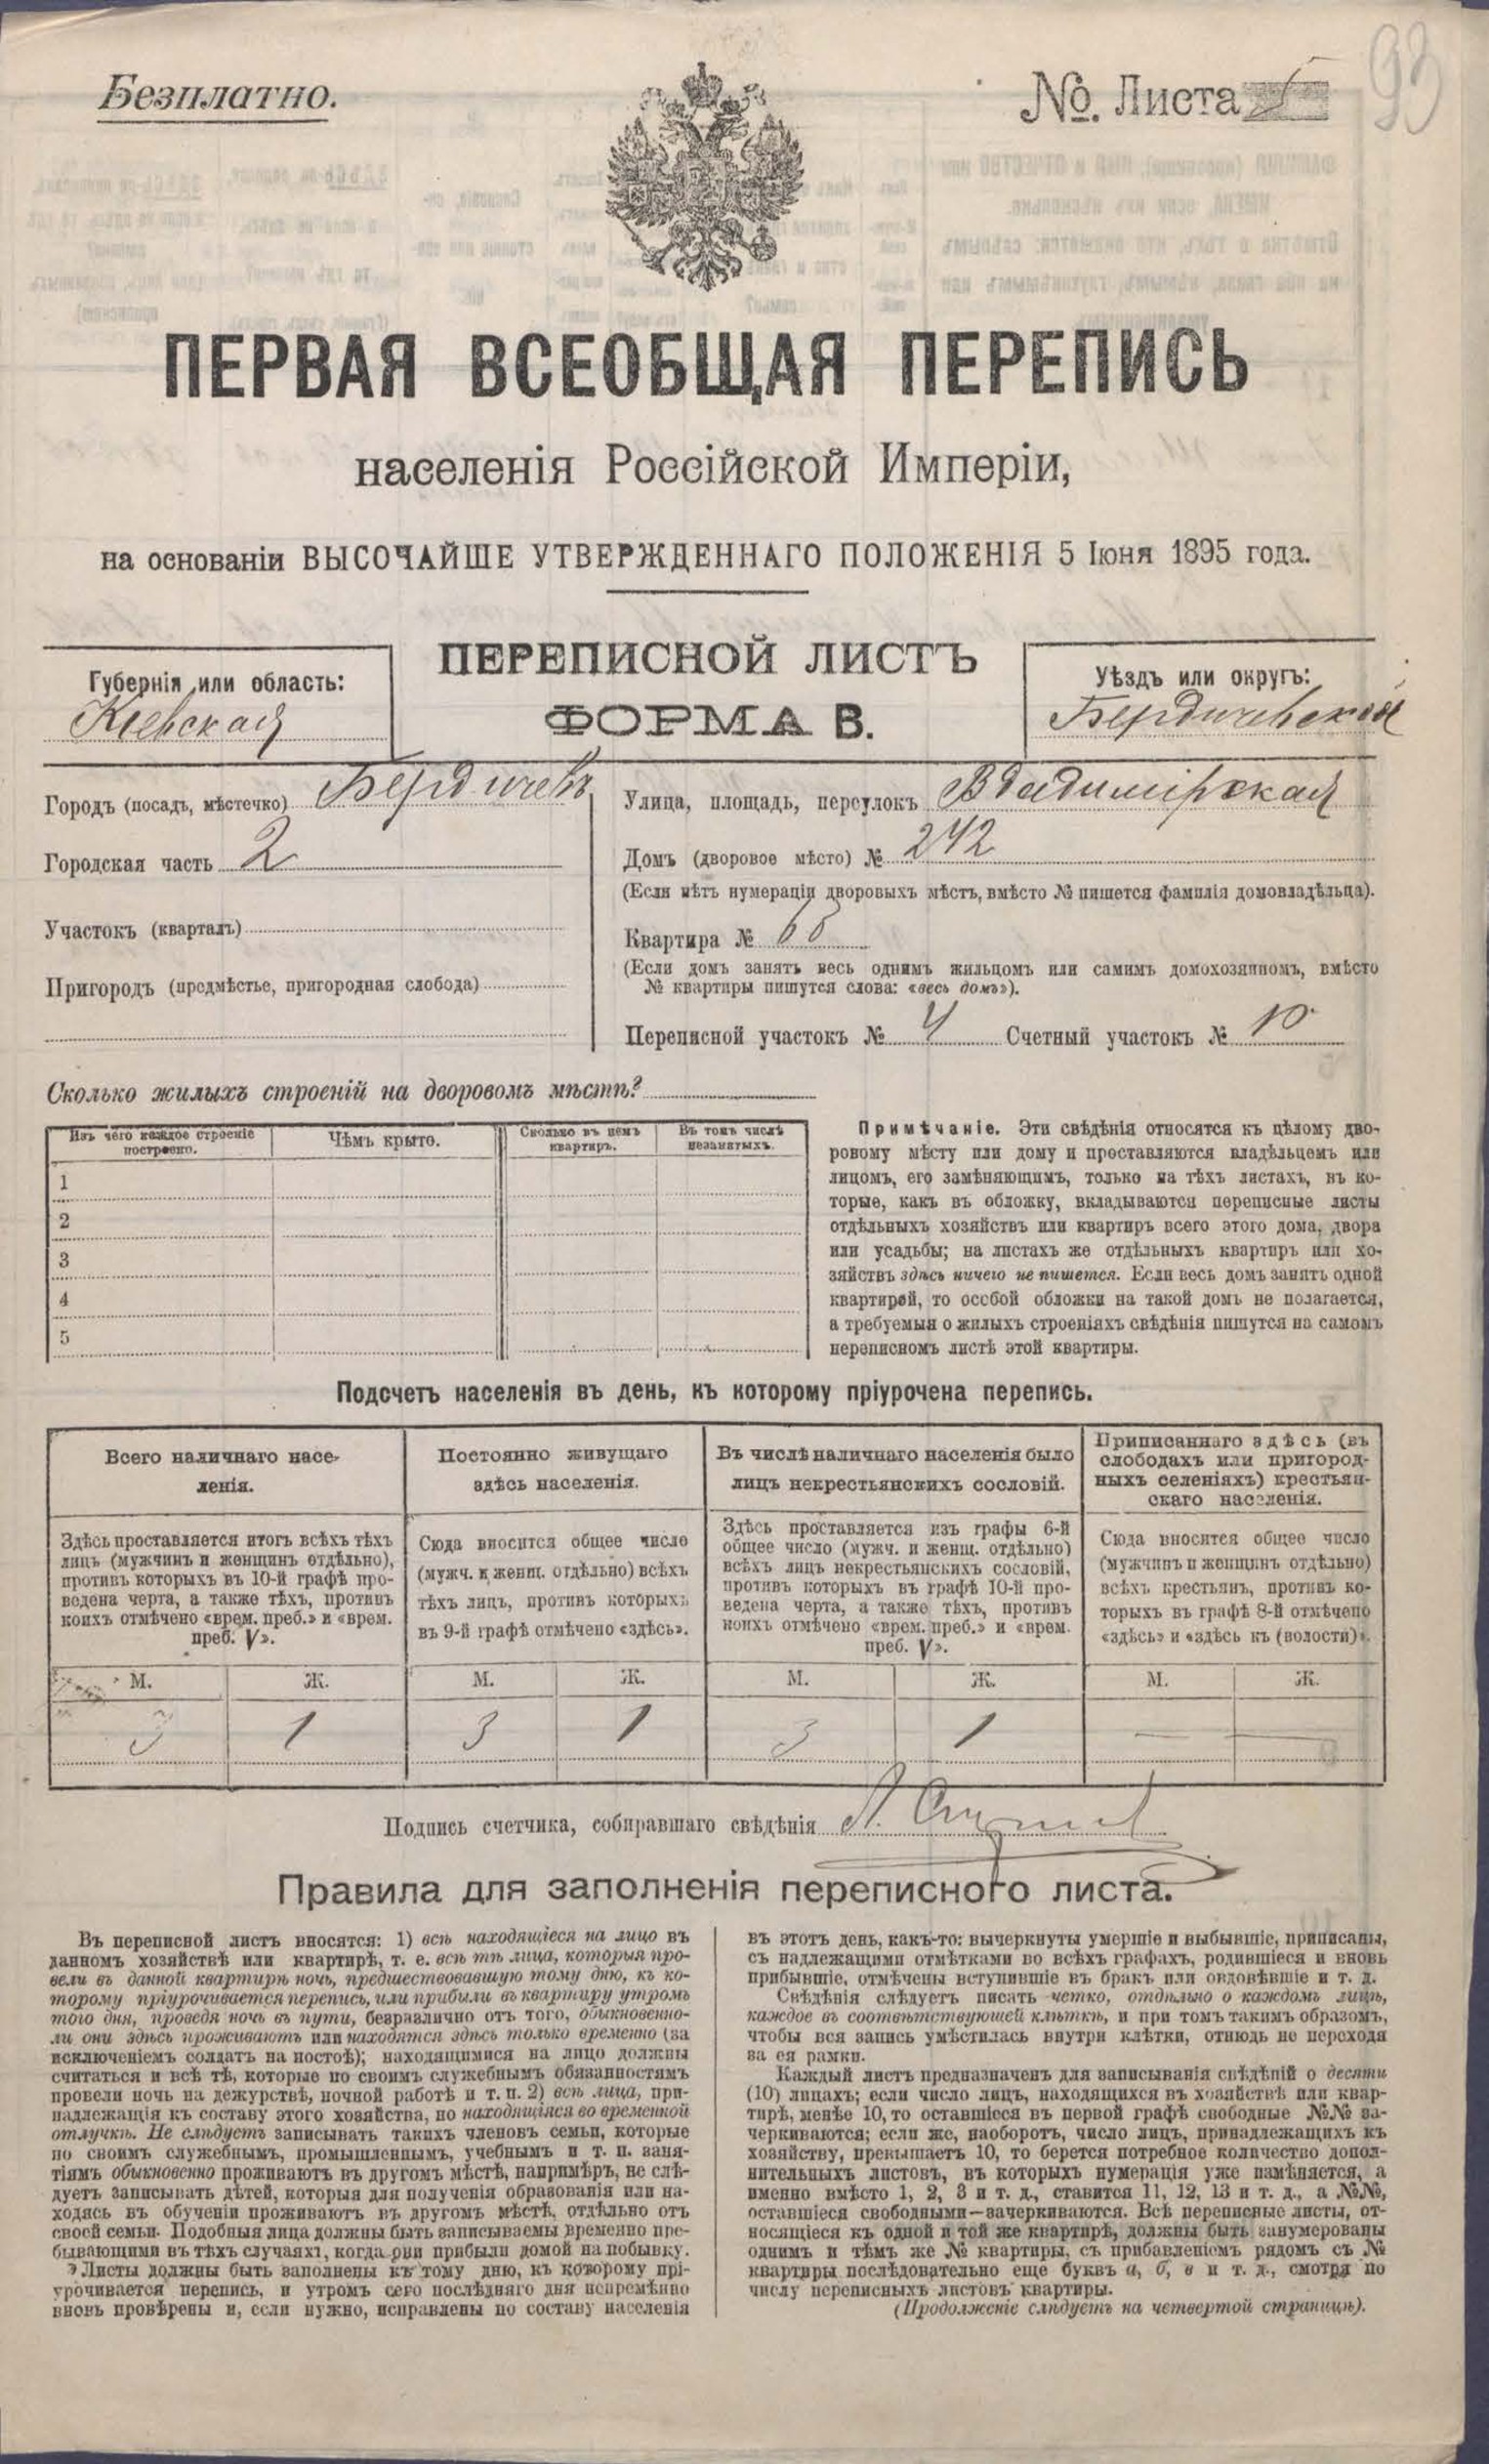 Безплатно.
№. Листа
93
ПЕРВАЯ ВСЕОБЩАЯ ПЕРЕПИСЬ
населенія Россійской Имперіи,
на основаніи ВЫСОЧАЙШЕ УТВЕРЖДЕННАГО ПОЛОЖЕНІЯ 5 Іюня 1895 года.
ПЕРЕПИСНОЙ ЛИСТЪ
ФОРМА В.
Губернія или область:
Кіевская
Уѣздъ или округъ:
Бердичевскій
Городъ (посадъ, мѣстечко) Бердичевъ
Городская часть 2
Участокъ (кварталъ)
Пригородъ (предмѣстье, пригородная слобода)
Улица, площадь, переулокъ Владимірская
Домъ (дворовое мѣсто) № 242
(Если нѣтъ нумераціи дворовыхъ мѣстъ, вмѣсто № пишется фамилія домовладѣльца).
Квартира №
(Если домъ занятъ весь однимъ жильцомъ или самимъ домохозяиномъ, вмѣсто
№ квартиры пишутся слова: «весь домъ»).
Переписной участокъ № 4 Счетный участокъ № 10
Сколько жилыхъ строеній на дворовомъ мѣстѣ?
Изъ чего каждое строеніе
построено.
Чѣмъ крыто.
Сколько въ немъ
квартиръ.
Въ томъ числѣ
незанятыхъ.
1
2
3
4
5
Примѣчаніе. Эти свѣдѣнія относятся къ цѣлому дво-
ровому мѣсту или дому и проставляются владѣльцемъ или
лицомъ, его замѣняющимъ, только на тѣхъ листахъ, въ ко-
торые, какъ въ обложку, вкладываются переписные листы
отдѣльныхъ хозяйствъ или квартиръ всего этого дома, двора
или усадьбы; на листахъ же отдѣльныхъ квартиръ или хо-
зяйствъ здѣсь ничего не пишется. Если весь домъ занятъ одной
квартирой, то особой обложки на такой домъ не полагается,
а требуемыя о жилыхъ строеніяхъ свѣдѣнія пишутся на самомъ
переписномъ листѣ этой квартиры.
Подсчетъ населенія въ день, къ которому пріурочена перепись.
Всего наличнаго насе-
ленія.
Постоянно живущаго
здѣсь населенія.
Въ числѣ наличнаго населенія было
лицъ некрестьянскихъ сословій.
Приписаннаго здѣсь (въ
слободахъ или пригород-
ныхъ селеніяхъ) крестьян-
скаго населенія.
Здѣсь проставляется итогъ всѣхъ тѣхъ
лицъ (мужчинъ и женщинъ отдѣльно),
противъ которыхъ въ 10-й графѣ про-
ведена черта, а также тѣхъ, противъ
коихъ отмѣчено «врем. преб.» и «врем.
преб. V».
Сюда вносится общее число
(мужч. и женщ. отдѣльно) всѣхъ
тѣхъ лицъ, противъ которыхъ
въ 9-й графѣ отмѣчено «здѣсь».
Здѣсь проставляется изъ графы 6-й
общее число (мужч. и женщ. отдѣльно)
всѣхъ лицъ некрестьянскихъ сословій,
противъ которыхъ въ графѣ 10-й про-
ведена черта, а также тѣхъ, противъ
коихъ отмѣчено «врем. преб.» и «врем.
преб. V».
Сюда вносится общее число
(мужчинъ и женщинъ отдѣльно)
всѣхъ крестьянъ, противъ ко-
торыхъ въ графѣ 8-й отмѣчено
«здѣсь» и «здѣсь къ (волости)».
М. Ж. М. Ж. М. Ж. М. Ж.
3 1 3 1 3 1 — —
Подпись счетчика, собиравшаго свѣдѣнія
Правила для заполненія переписного листа.
Въ переписной листъ вносятся: 1) всѣ находящіеся на лицо въ
данномъ хозяйствѣ или квартирѣ, т. е. всѣ тѣ лица, которыя про-
вели въ данной квартирѣ ночь, предшествовавшую тому дню, къ ко-
торому пріурочивается перепись, или прибыли въ квартиру утромъ
того дня, проведя ночь въ пути, безразлично отъ того, обыкновенно-
ли они здѣсь проживаютъ или находятся здѣсь только временно (за
исключеніемъ солдатъ на постоѣ); находящимися на лицо должны
считаться и всѣ тѣ, которые по своимъ служебнымъ обязанностямъ
провели ночь на дежурствѣ, ночной работѣ и т. п. 2) всѣ лица, при-
надлежащія къ составу этого хозяйства, но находящіяся во временной
отлучкѣ. Не слѣдуетъ записывать такихъ членовъ семьи, которые
по своимъ служебнымъ, промышленнымъ, учебнымъ и т. п. заня-
тіямъ обыкновенно проживаютъ въ другомъ мѣстѣ, напримѣръ, не слѣ-
дуетъ записывать дѣтей, которыя для полученія образованія или на-
ходясь въ обученіи проживаютъ въ другомъ мѣстѣ, отдѣльно отъ
своей семьи. Подобныя лица должны быть записываемы временно пре-
бывающими въ тѣхъ случаяхъ, когда они прибыли домой на побывку.
Листы должны быть заполнены къ тому дню, къ которому прі-
урочивается перепись, и утромъ сего послѣдняго дня непремѣнно
вновь провѣрены и, если нужно, исправлены по составу населенія
въ этотъ день, какъ-то: вычеркнуты умершіе и выбывшіе, приписаны,
съ надлежащими отмѣтками во всѣхъ графахъ, родившіеся и вновь
прибывшіе, отмѣчены вступившіе въ бракъ или овдовѣвшіе и т. д.
Свѣдѣнія слѣдуетъ писать четко, отдѣльно о каждомъ лицѣ,
каждое въ соотвѣтствующей клѣткѣ, и при томъ такимъ образомъ,
чтобы вся запись умѣстилась внутри клѣтки, отнюдь не переходя
за ея рамки.
Каждый листъ предназначенъ для записыванія свѣдѣній о десяти
(10) лицахъ; если число лицъ, находящихся въ хозяйствѣ или квар-
тирѣ, менѣе 10, то оставшіеся въ первой графѣ свободные №№ за-
черкиваются; если же, наоборотъ, число лицъ, принадлежащихъ къ
хозяйству, превышаетъ 10, то берется потребное количество допол-
нительныхъ листовъ, въ которыхъ нумерація уже измѣняется, а
именно вмѣсто 1, 2, 3 и т. д., ставится 11, 12, 13 и т. д., а №№,
оставшіеся свободными—зачеркиваются. Всѣ переписные листы, от-
носящіеся къ одной и той же квартирѣ, должны быть занумерованы
однимъ и тѣмъ же № квартиры, съ прибавленіемъ рядомъ съ №
квартиры послѣдовательно еще буквъ а, б, в и т. д., смотря по
числу переписныхъ листовъ квартиры.
(Продолженіе слѣдуетъ на четвертой страницѣ).